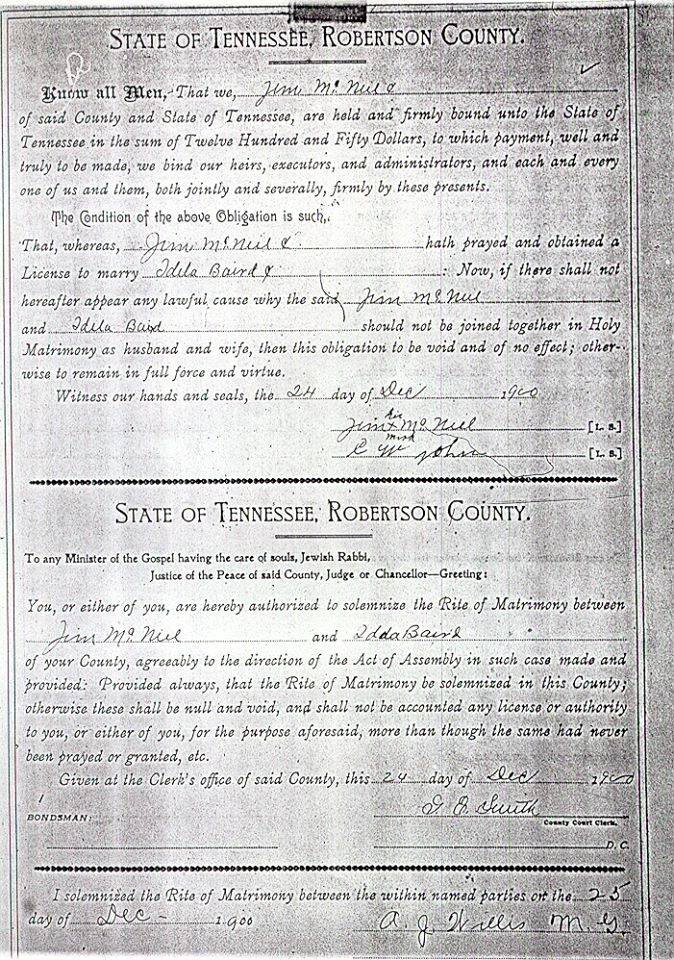 STATE OF TENNESSEE, ROBERTSON COUNTY.
Know all Men, That we, Jim McNeil &
of said County and State of Tennessee, are held and firmly bound unto the State of
Tennessee in the sum of Twelve Hundred and Fifty Dollars, to which payment, well and
truly to be made, we bind our heirs, executors, and administrators, and each and every
one of us and them, both jointly and severally, firmly by these presents.
The Condition of the above Obligation is such,
That, whereas, Jim McNeil & hath prayed and obtained a
License to marry Idela Baird & : Now, if there shall not
hereafter appear any lawful cause why the said Jim McNeil
and Idela Baird should not be joined together in Holy
Matrimony as husband and wife, then this obligation to be void and of no effect; other-
wise to remain in full force and virtue.
Witness our hands and seals, the 24 day of Dec 1900
his
Jim x McNeil [L. S.]
mark
C W John [L. S.]
STATE OF TENNESSEE, ROBERTSON COUNTY.
To any Minister of the Gospel having the care of souls, Jewish Rabbi,
Justice of the Peace of said County, Judge or Chancellor—Greeting:
You, or either of you, are hereby authorized to solemnize the Rite of Matrimony between
Jim McNeil and Idda Baird
of your County, agreeably to the direction of the Act of Assembly in such case made and
provided: Provided always, that the Rite of Matrimony be solemnized in this County;
otherwise these shall be null and void, and shall not be accounted any license or authority
to you, or either of you, for the purpose aforesaid, more than though the same had never
been prayed or granted, etc.
Given at the Clerk's office of said County, this 24 day of Dec 1900
BONDSMAN: Smith
County Court Clerk.
D. C.
I solemnized the Rite of Matrimony between the within named parties on the 25
day of Dec - 1900 A. J. Willis M. G.